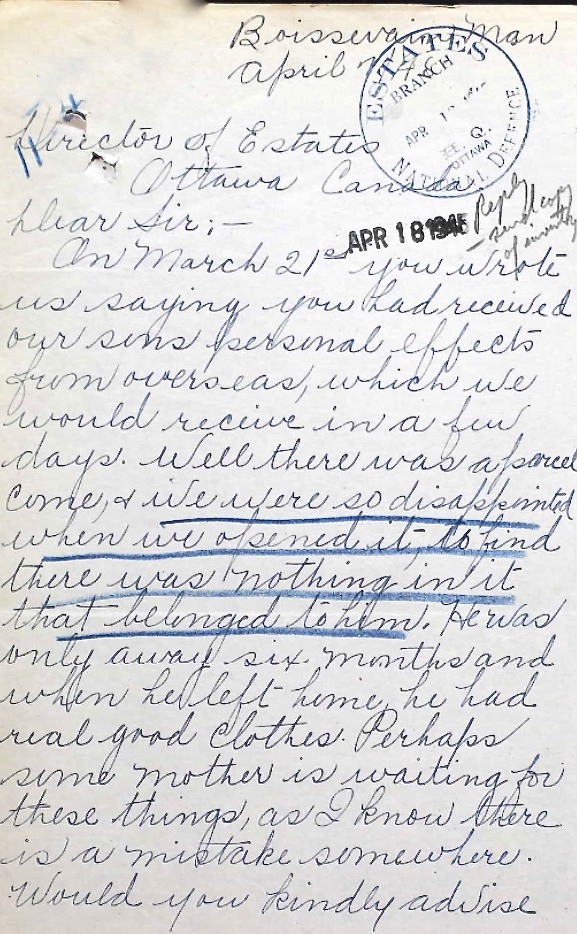 Boissevain, Man
April
ESTATES
BRANCH
APR 1
Q.
OTTAWA
NATIONAL DEFENCE
Director of Estates
Ottawa Canada
Dear Sir;—
APR 18 1945
Reply
- send copy
of inventory
On March 21st you wrote
us saying you had received
our sons personal effects
from overseas, which we
would receive in a few
days. Well there was a parcel
come, & we were so disappointed
when we opened it, to find
there was nothing in it
that belonged to him. He was
only away six months and
when he left home, he had
real good clothes. Perhaps
some mother is waiting for
these things, as I know there
is a mistake somewhere.
Would you kindly advise